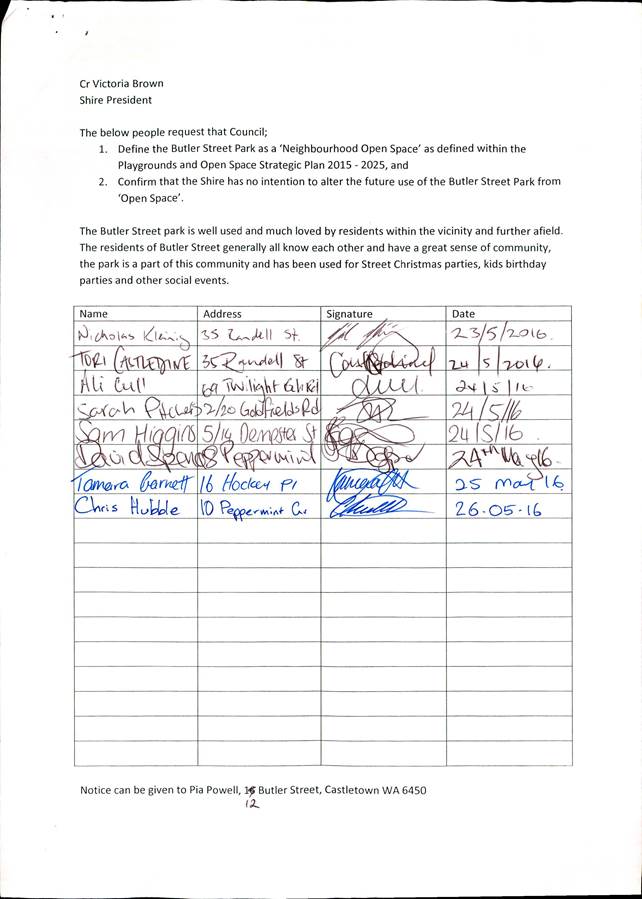 Cr Victoria Brown
Shire President
The below people request that Council;
1. Define the Butler Street Park as a 'Neighbourhood Open Space' as defined within the
Playgrounds and Open Space Strategic Plan 2015 - 2025, and
2. Confirm that the Shire has no intention to alter the future use of the Butler Street Park from
'Open Space'.
The Butler Street park is well used and much loved by residents within the vicinity and further afield.
The residents of Butler Street generally all know each other and have a great sense of community,
the park is a part of this community and has been used for Street Christmas parties, kids birthday
parties and other social events.
Name Address Signature Date
Nicholas 35 Randell St. 23/5/2016.
TORI 35 Randell St 24/5/2016.
Ali Cull 69 Twilight 24/5/16
Sarah 2/20 Goldfields Rd 24/5/16
Sam Higgins 5/14 Dempster St 24/5/16.
David 8 Peppermint 24th May 16.
Tamara Garnett 16 Hockey Pl 25 Mai 16
Chris Hubble 10 Peppermint Gr 26-05-16
Notice can be given to Pia Powell, Butler Street, Castletown WA 6450
12